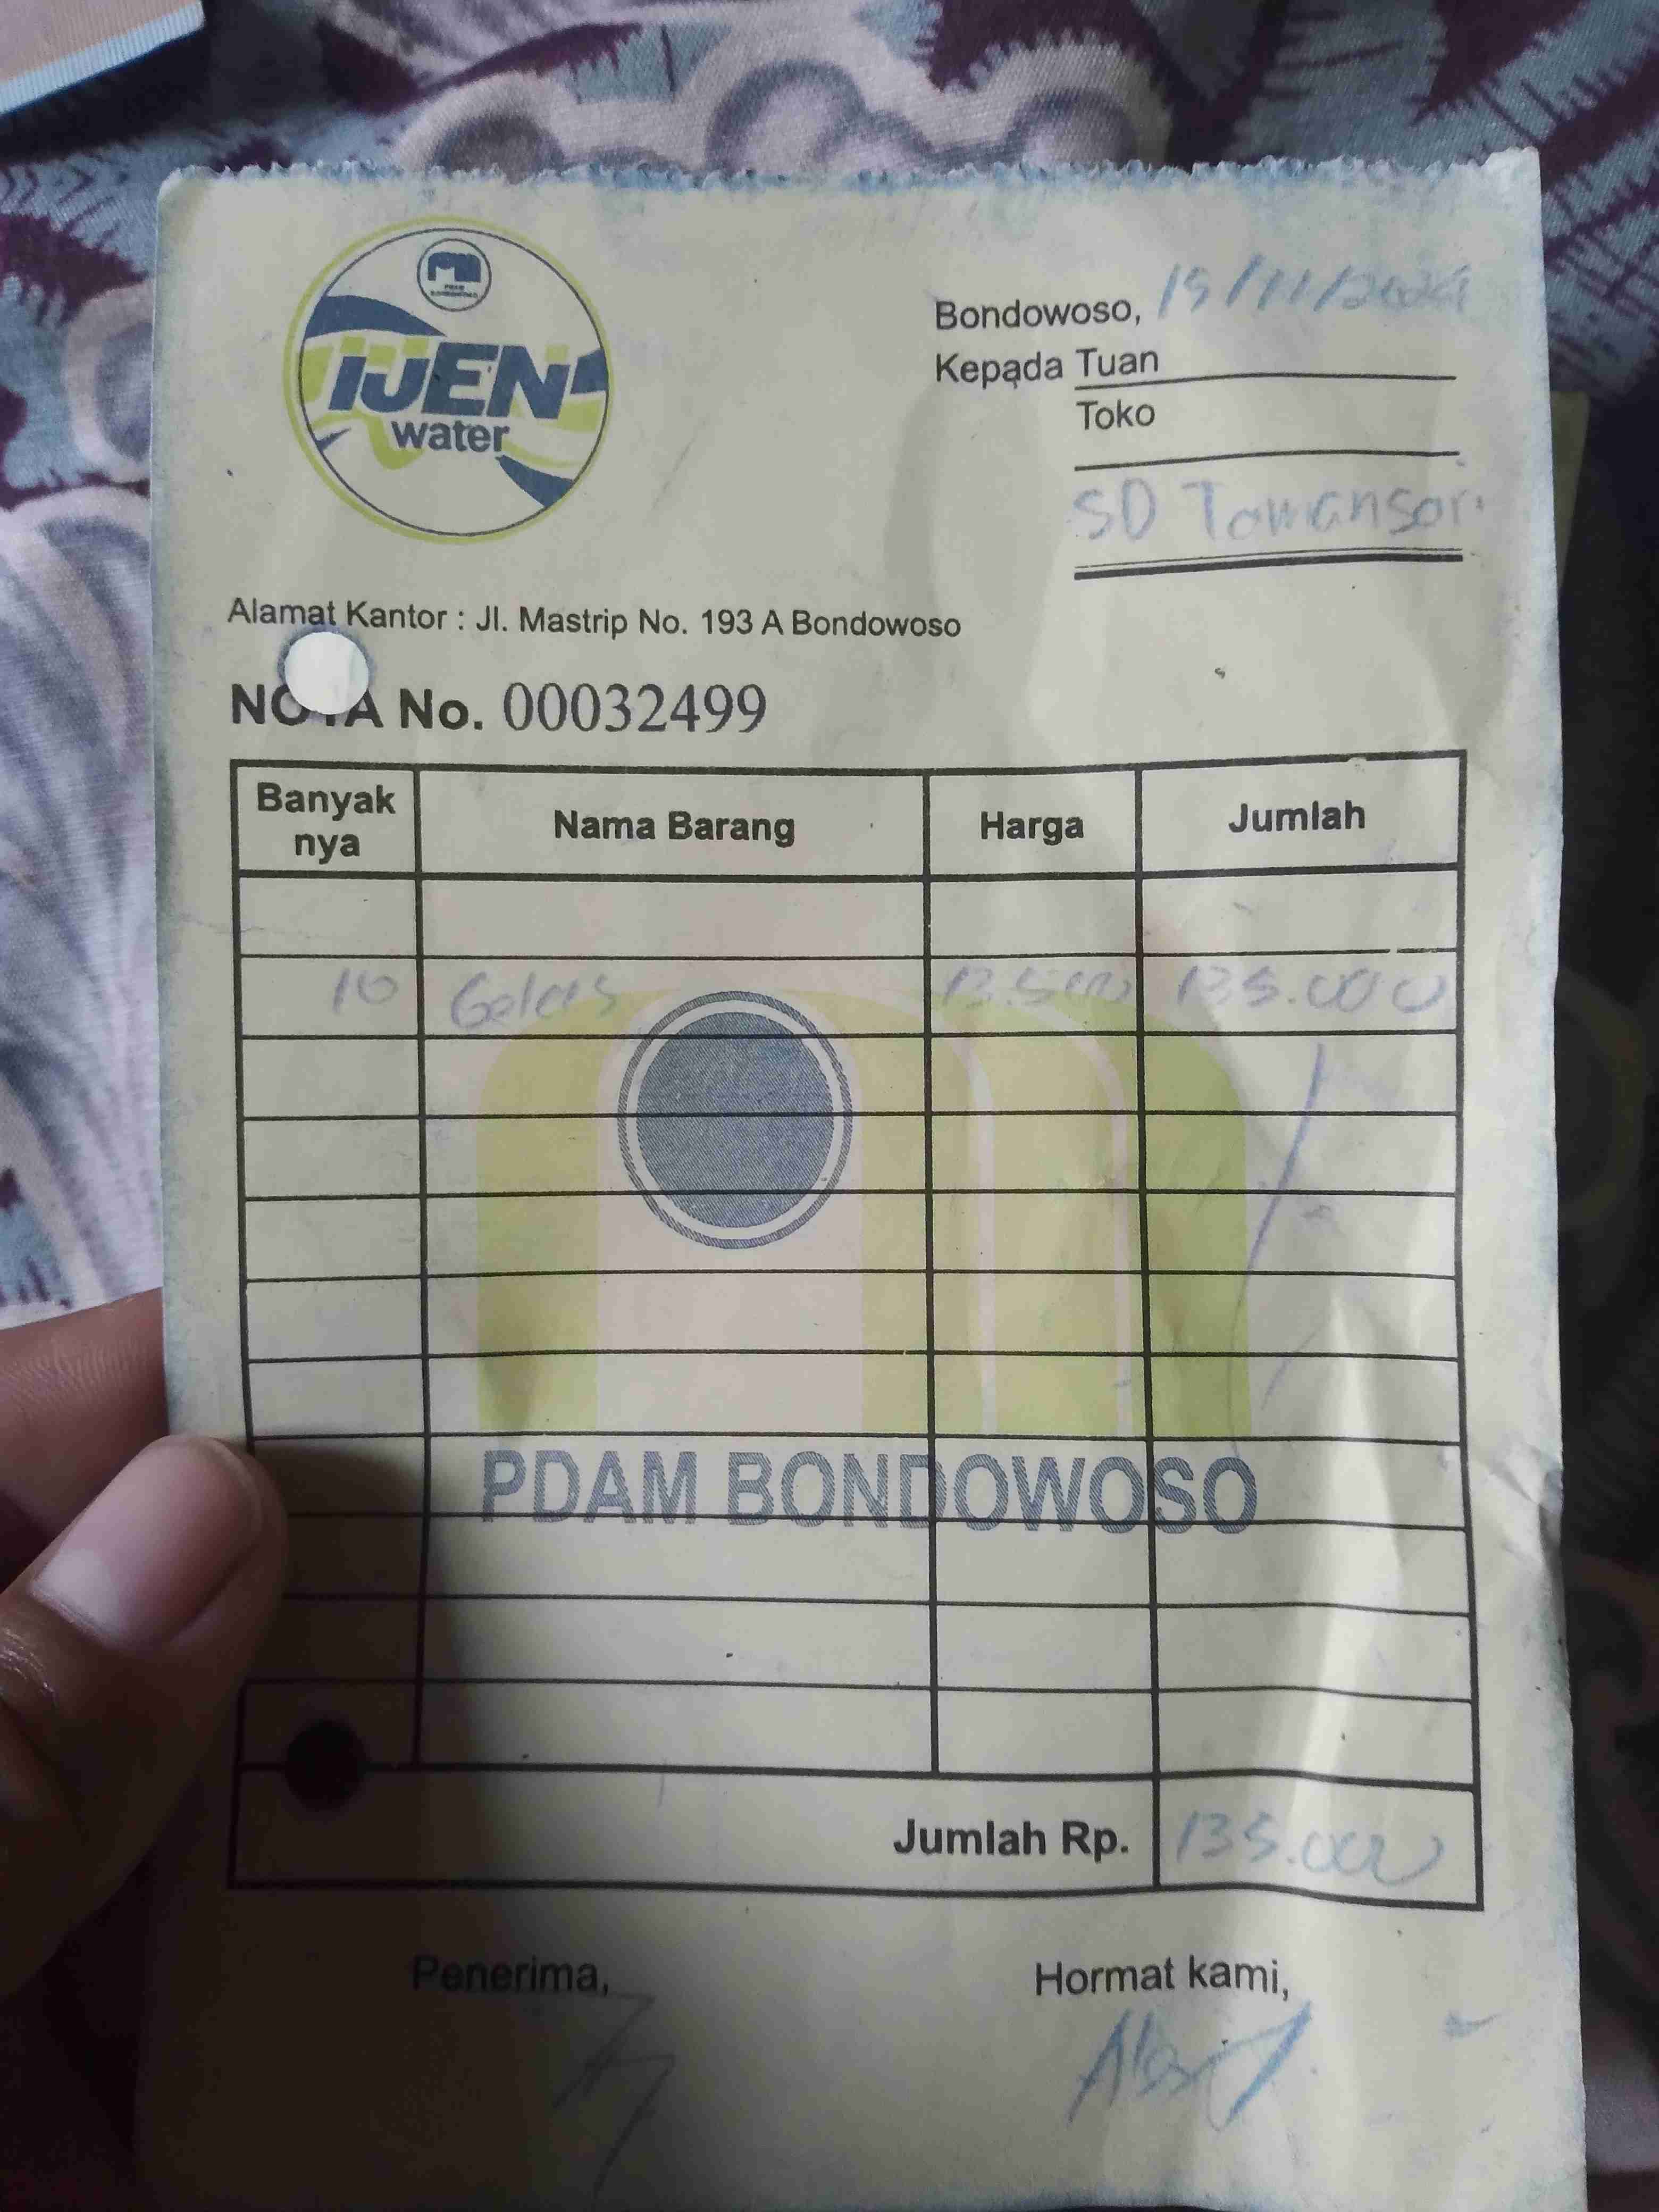 IJEN
water
Bondowoso, 15/11/2024
Kepada Tuan
Toko
SD Tamansari
Alamat Kantor : Jl. Mastrip No. 193 A Bondowoso
NOTA No. 00032499
Banyak nya Nama Barang Harga Jumlah
10 Gelas 13.500 135.000
PDAM BONDOWOSO
Jumlah Rp. 135.000
Penerima, Hormat kami,